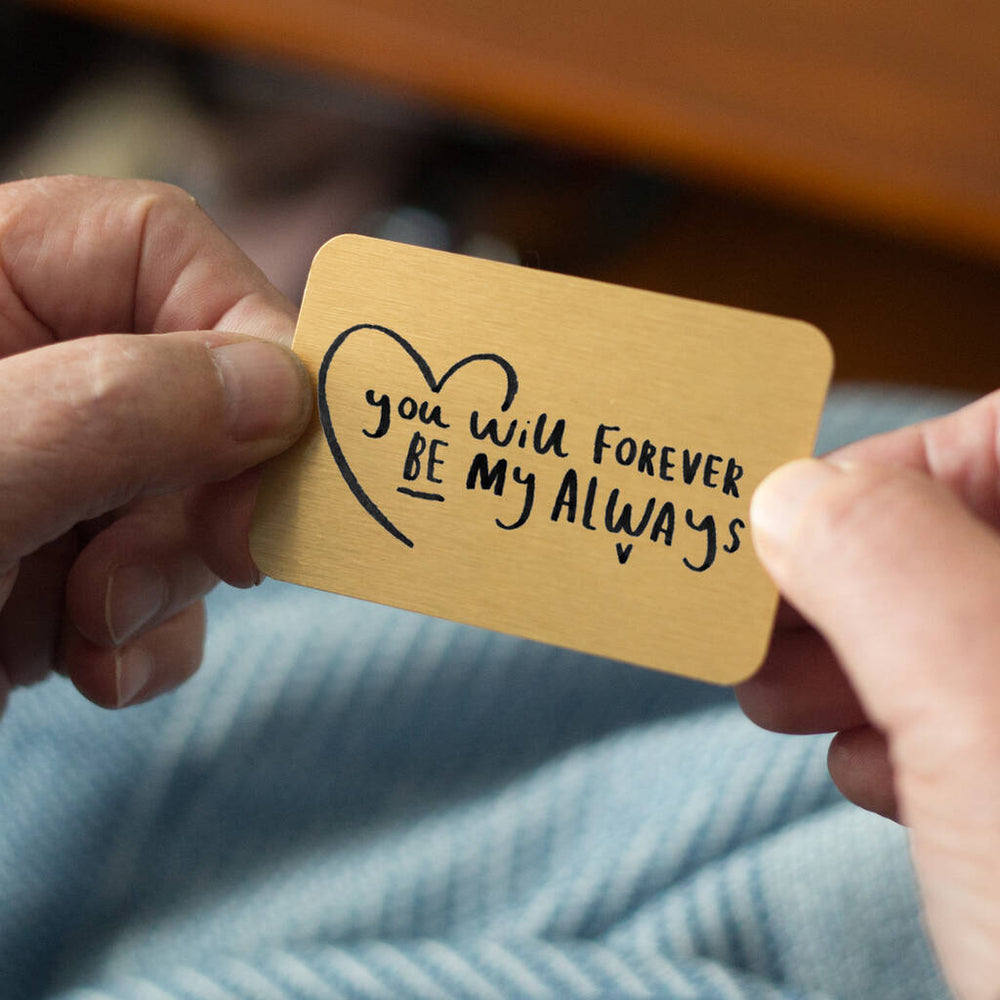 you will FOREVER
BE My AlWAyS